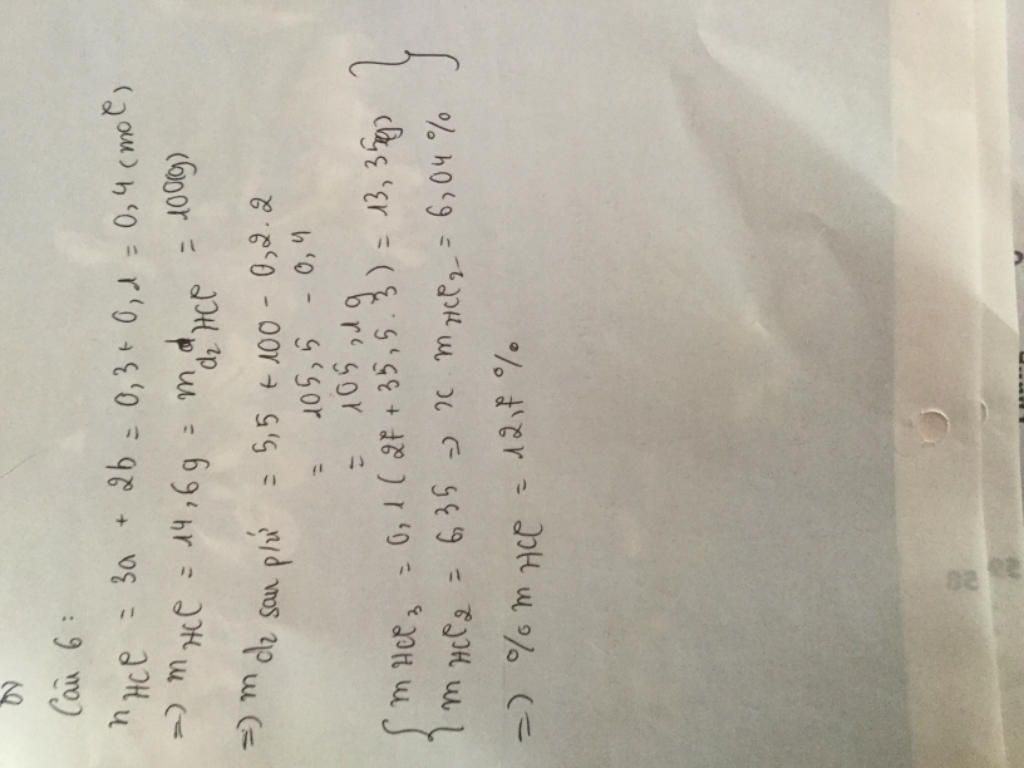 Câu 6:
n HCl = 3a + 2b = 0,3 + 0,1 = 0,4 (mol)
=) m HCl = 14,6g = m d2 HCl = 100(g)
=) m d2 sau p/ứ = 5,5 + 100 - 0,2.2
= 105,5 - 0,4
= 105,1g
{ m HCl3 = 0,1 (27 + 35,5.3) = 13,35(g) }
{ m HCl2 = 6,35 => x m HCl2 = 6,04% }
=) % m HCl = 12,7%